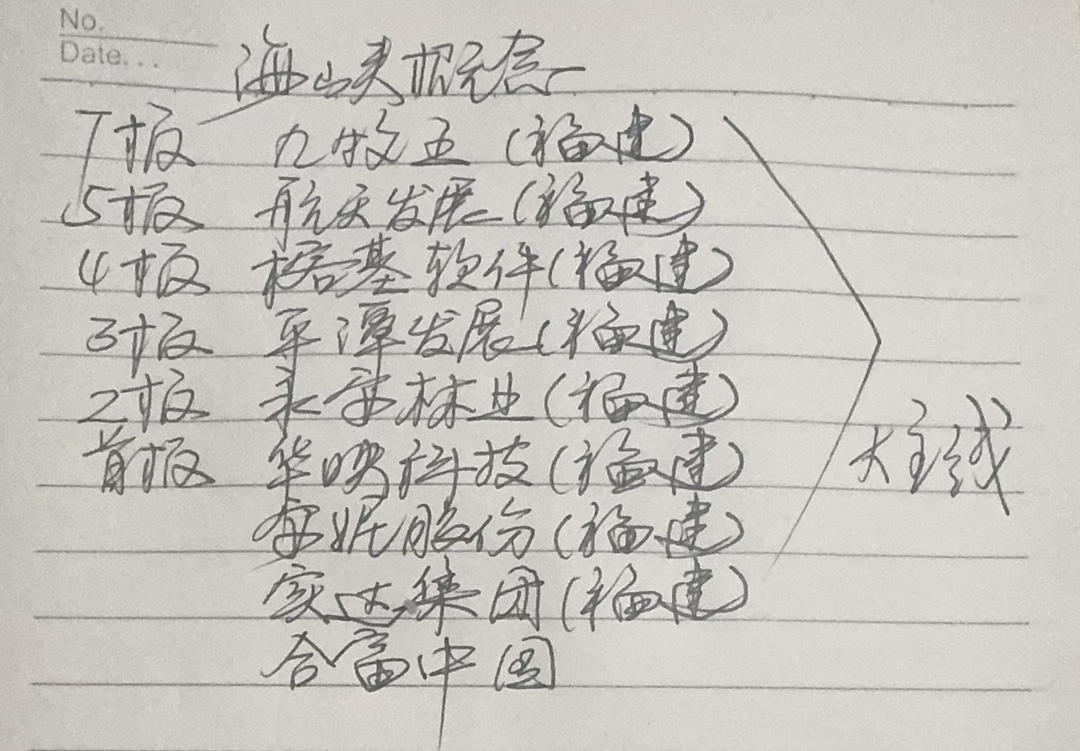 No.
Date...
海峡概念
7板 九牧王(福建)
5板 航天发展(福建)
4板 榕基软件(福建)
3板 平潭发展(福建)
2板 永安林业(福建)
首板 华映科技(福建)
安妮股份(福建)
实达集团(福建)
合富中国
大主线